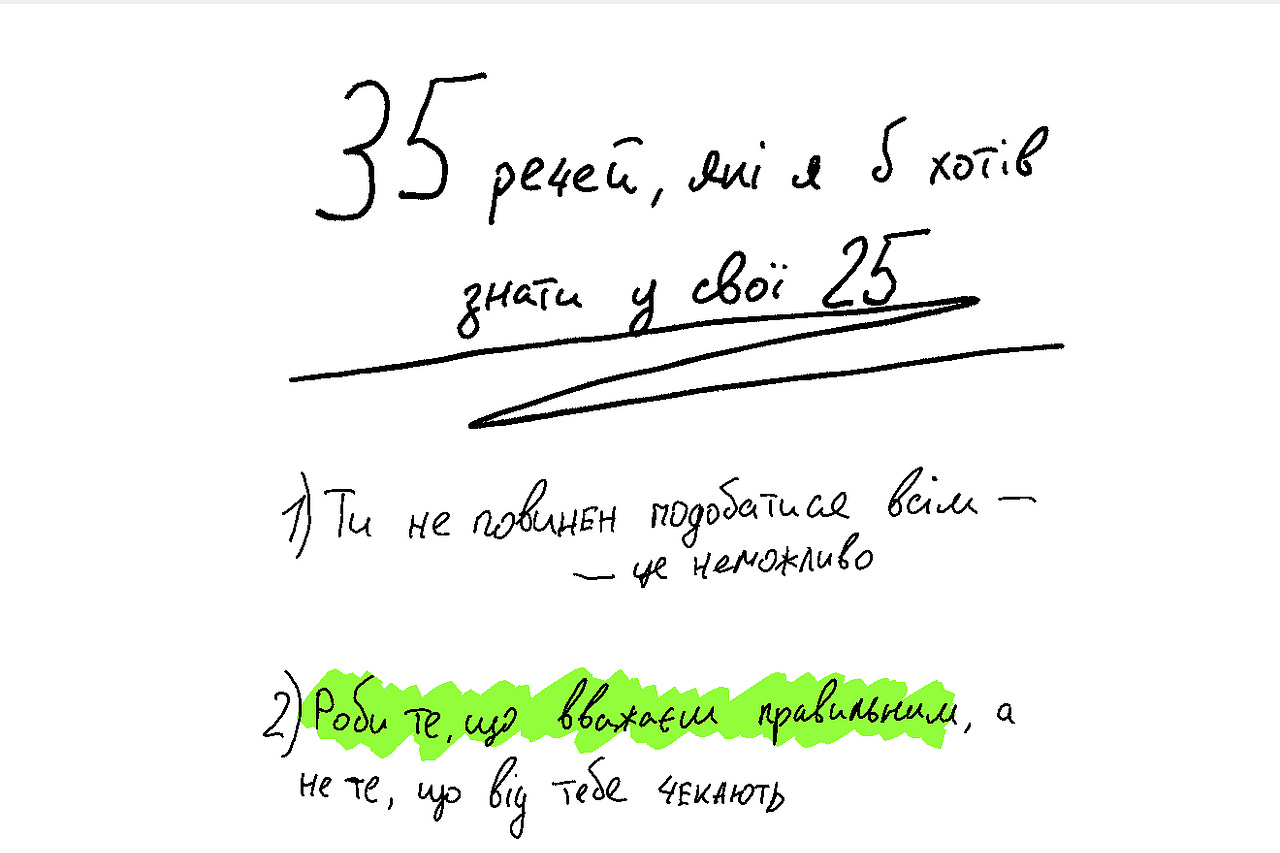 35 речей, які я б хотів
знати у свої 25
1) Ти не повинен подобатися всім —
— це неможливо
2) Роби те, що вважаєш правильним, а
не те, що від тебе чекають